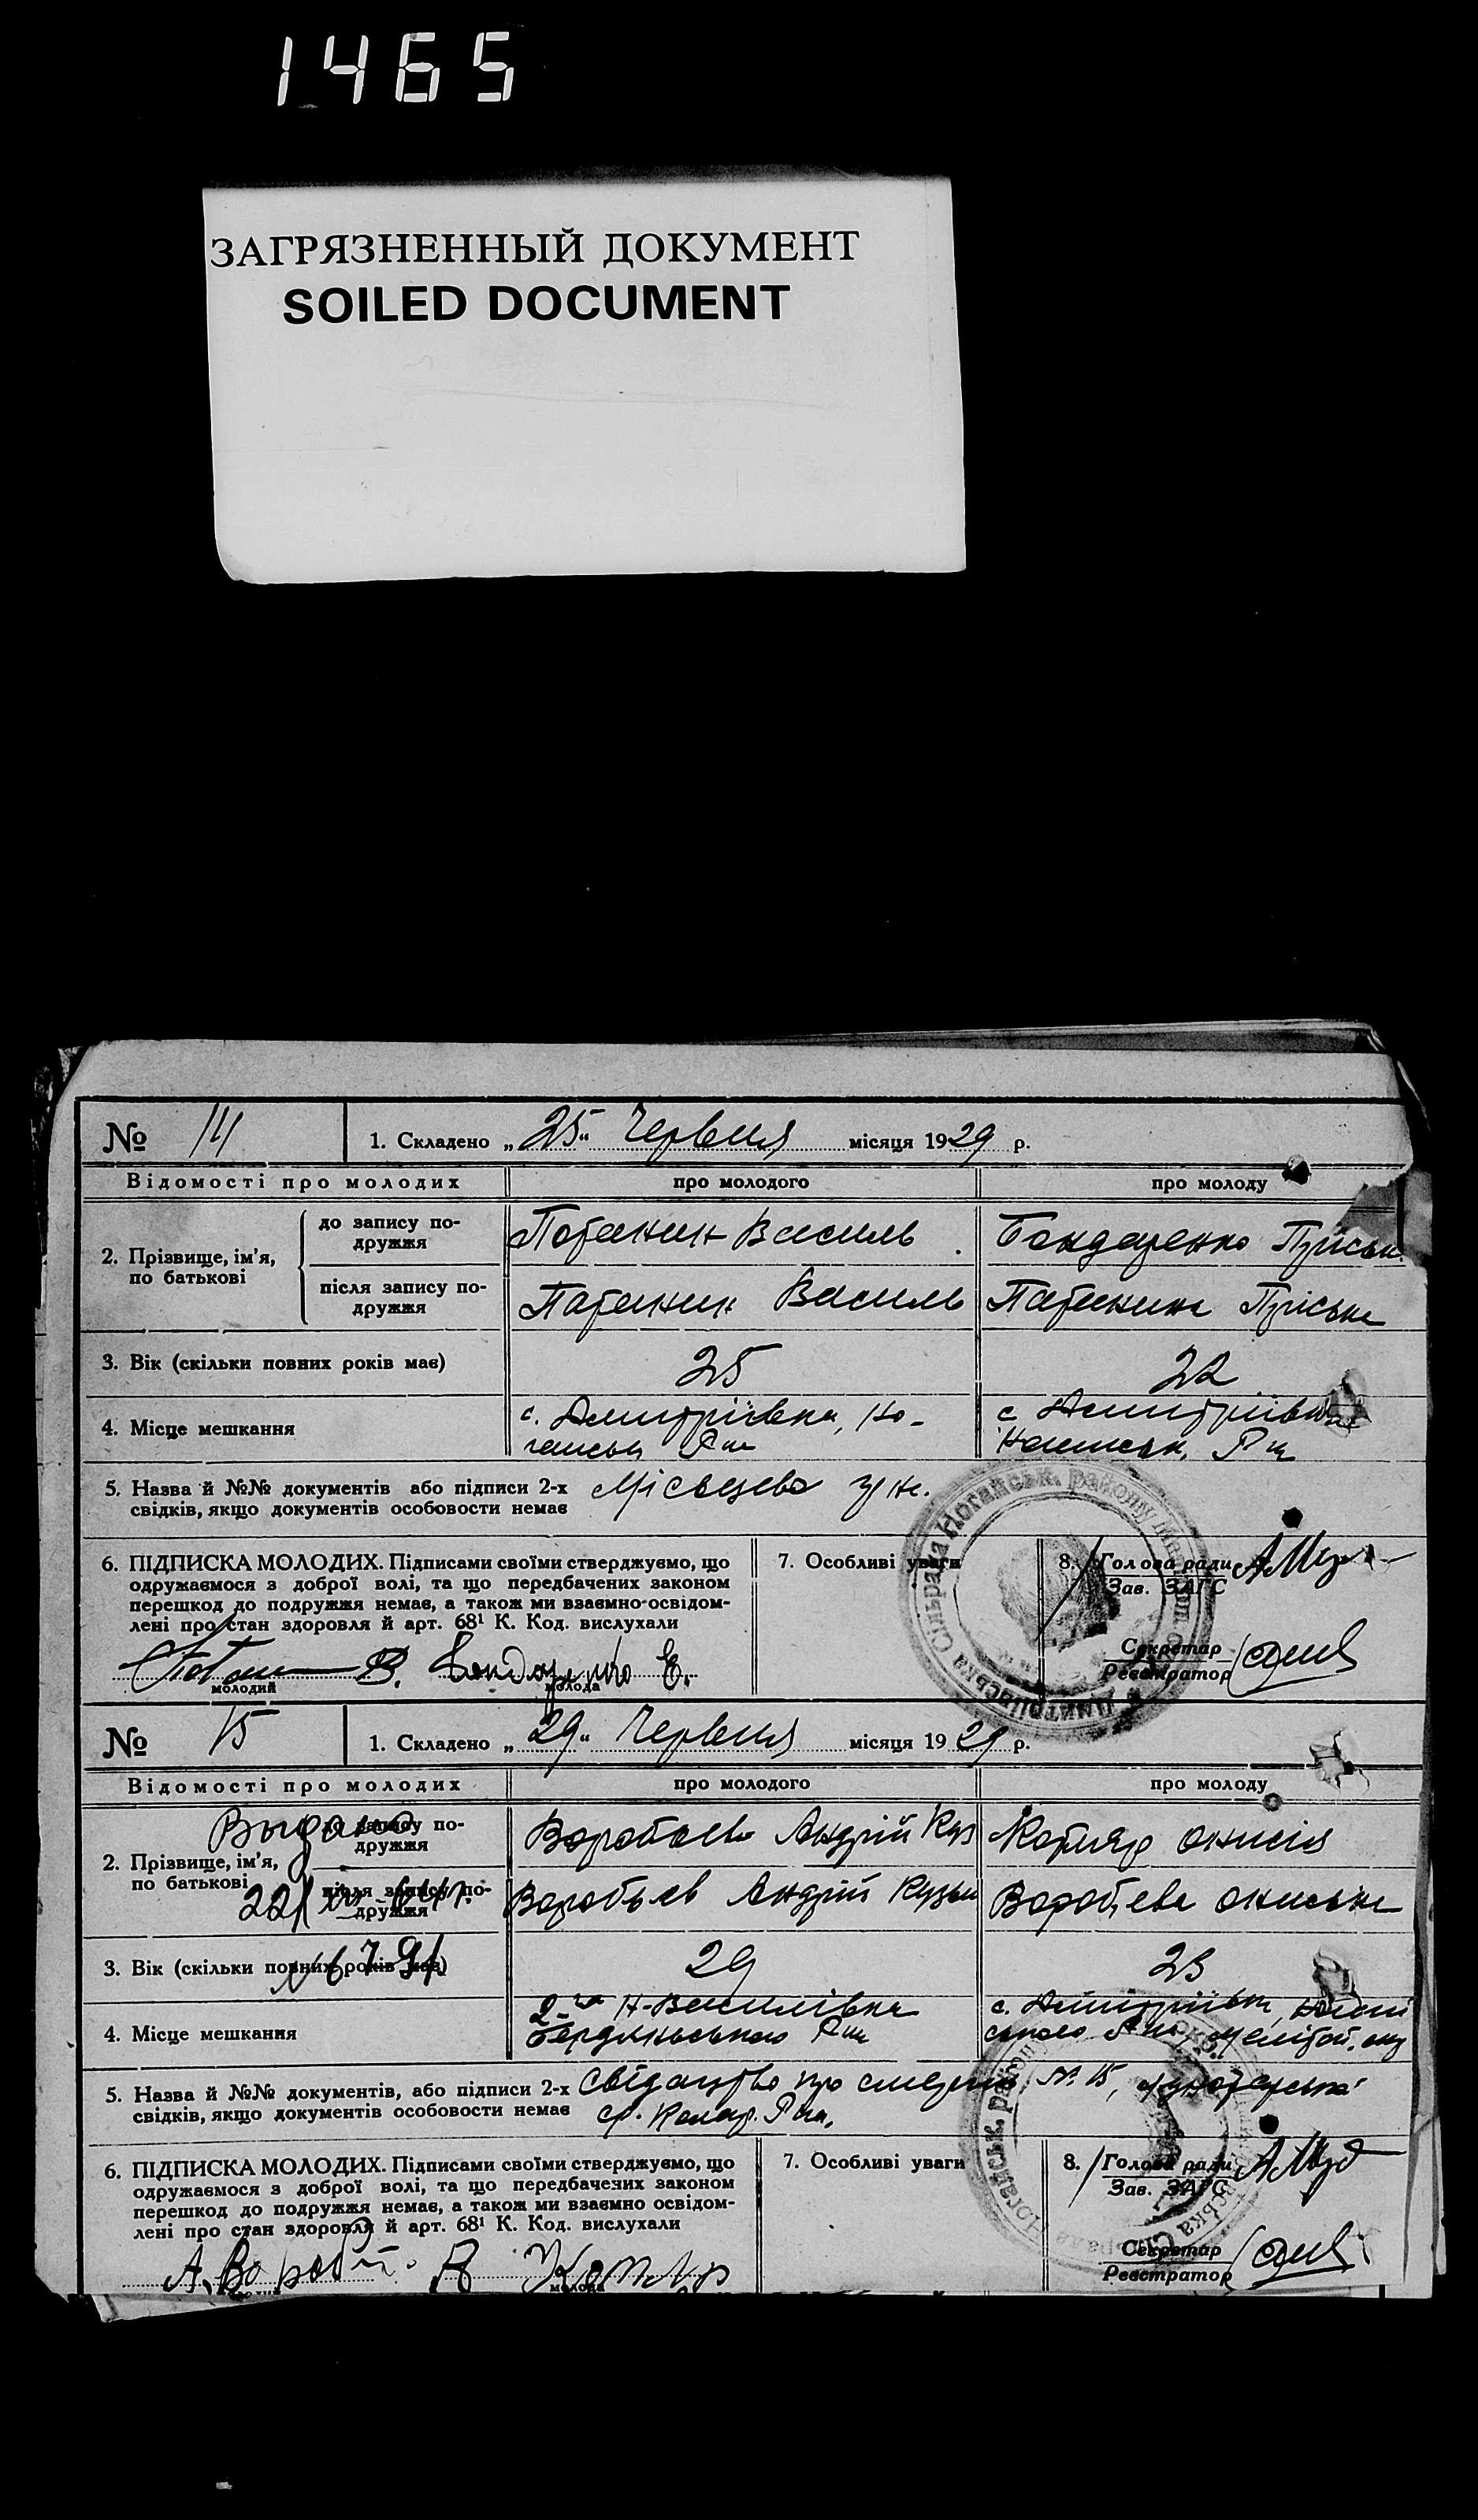 1465
ЗАГРЯЗНЕННЫЙ ДОКУМЕНТ
SOILED DOCUMENT
№ 14
1. Складено „25“ Червня місяця 1929 р.
Відомості про молодих
про молодого
про молоду
2. Прізвище, ім'я, по батькові
до запису по-
дружжя
Потанин Василь
Бондаренко Пріська
після запису по-
дружжя
Патанин Василь
Патанина Пріська
3. Вік (скільки повних років має)
25
22
4. Місце мешкання
с. Дмитріївка, Но-
гайськ Р-на
с Дмитріївка
Р-на
5. Назва й №№ документів або підписи 2-х
свідків, якщо документів особовости немає
Місьцева
6. ПІДПИСКА МОЛОДИХ. Підписами своїми стверджуємо, що
одружаємося з доброї волі, та що передбачених законом
перешкод до подружжя немає, а також ми взаємно-освідом-
лені про стан здоровля й арт. 68¹ К. Код. вислухали
В. Бондаренко Е.
молодий
молода
7. Особливі уваги
8. Голова ради
Зав. ЗАГС
Секретар
Реєстратор
Дмитрівська Сільрада Ногайськ. району
№ 15
1. Складено „29“ Червня місяця 1929 р.
Відомості про молодих
про молодого
про молоду
Выдано
2. Прізвище, ім'я,
по батькові
до запису по-
дружжя
Воробьев Андрій Куз
Котляр Онисія
після запису по-
дружжя
Воробьев Андрій Кузьм
Воробьева Ониська
3. Вік (скільки повних років має)
29
23
4. Місце мешкання
Н-Василівка
Бердянського Р-на
с. Дмитріївка
5. Назва й №№ документів, або підписи 2-х
свідків, якщо документів особовости немає
Свідацтво про № 15,
6. ПІДПИСКА МОЛОДИХ. Підписами своїми стверджуємо, що
одружаємося з доброї волі, та що передбачених законом
перешкод до подружжя немає, а також ми взаємно освідом-
лені про стан здоровля й арт. 68¹ К. Код. вислухали
А. Котляр
молода
7. Особливі уваги
8. Голова ради
Зав. ЗАГС
Секретар
Реєстратор